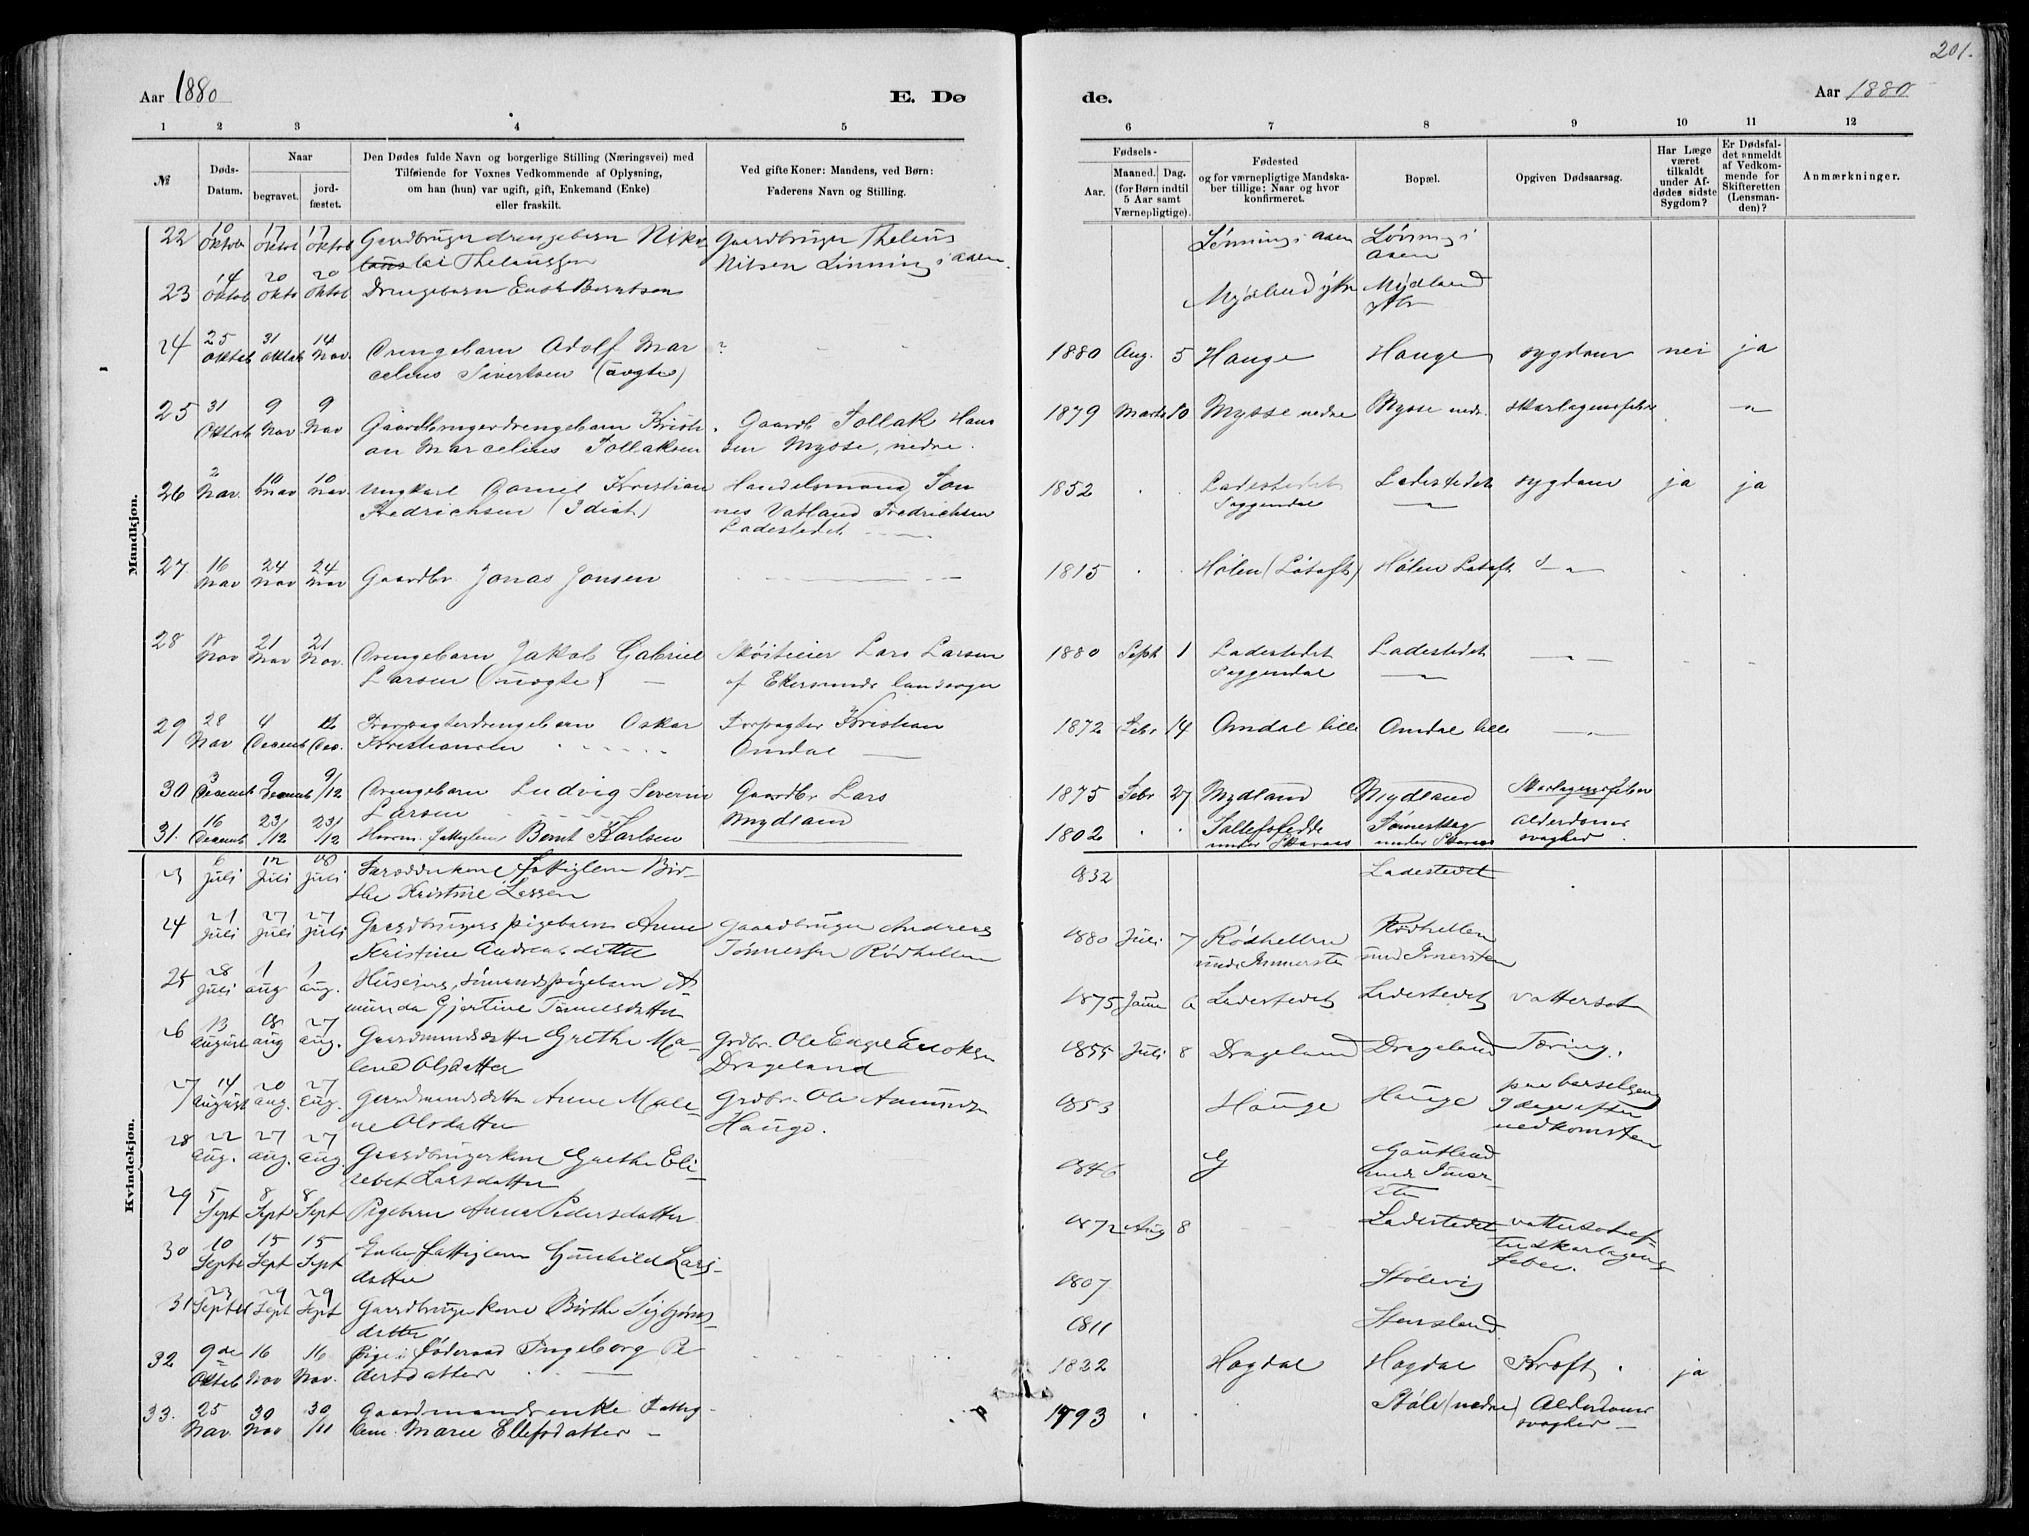 201.
Aar 1880
E. Dø
de.
Aar 1880
1 2 3 4 5
6 7 8 9 10 11 12
№
Døds-
Datum.
Naar
begravet.
jord-
fæstet.
Den Dødes fulde Navn og borgerlige Stilling (Næringsvei) med
Tilføiende for Voxnes Vedkommende af Oplysning,
om han (hun) var ugift, gift, Enkemand (Enke)
eller fraskilt.
Ved gifte Koner: Mandens, ved Børn:
Faderens Navn og Stilling.
Fødsels-
Aar.
Maaned. Dag.
(for Børn indtil
5 Aar samt
Værnepligtige).
Fødested
og for værnepligtige Mandska-
ber tillige: Naar og hvor
konfirmeret.
Bopæl.
Opgiven Dødsaarsag.
Har Læge
været
tilkaldt
under Af-
dødes sidste
Sygdom?
Er Dødsfal-
det anmeldt
af Vedkom-
mende for
Skifteretten
(Lensman-
den)?
Anmærkninger.
Mandkjøn.
22 10 Oktob 17 Oktob 17 Oktob Gaardbruger drengebarn Niko
lai Thelaussen
Gaardbruger Thelaus
Nilsen Lønning i aasen.
Lønning i aasen Lønning i
aasen
23 14 Oktob 20 Oktb 20 Oktob Drengebarn Berntsen
Mydland ytre Mydland
ytre
24 25 Oktob 31 Oktob 14 Nov. Drengebarn Adolf Mar
celius Sivertsen (uægte)
?
1880 Aug. 5 Hauge Hauge sygdom nei ja
25 31 Oktob 9 Nov 9 Nov Gaardbrugerdrengebarn Kristi
an Marcelius Tollaksen
Gaardb Tollak Han
sen Mysse, nedre.
1879 Marts 10 Mysse nedre Mysse nedr. skarlagensfeber
26 2 Nov. 10 Nov 10 Nov. Ungkarl Daniel Kristian
Fredrichsen (Idiot)
Handelsmand Tøn
nes Vatland Fredrichsen
Ladestedet
1852 Ladestedet
Soggendal
Ladestedet sygdom ja ja
27 16 Nov 24 Nov 24 Nov Gaardbr Jonas Jonsen
1815 Hølen (Løtoft) Hølen Løtoft
28 18 Nov 21 Nov 21 Nov. Drengebarn Jakob Gabriel
Larsen (uægte)
Skøiteier Lars Larsen
af Ekersunds landsogn
1880 Sept 1 Ladestedet
Soggendal
Ladestedet
29 28 Nov 4 Decemb 12 Dec. Forpagterdrengebarn Oskar
Kristiansen
Forpagter Kristian
Omdal
1872 Febr 14 Omdal lille Omdal lille
30 3 Decemb 9 Decemb 9/12 Drengebarn Ludvig Severin
Larsen
Gaardbr Lars
Mydland
1875 Febr 27 Mydland Mydland Skarlagensfeber
31. 16 Decemb 23/12 23/12 Bernt Karlsen
1802 under Skaraas under Skaraas Alderdoms
svaghed
Kvindekjøn.
23 6 Juli 12 Juli 18 Juli fattiglem Bir-
the Kristine Lassen
1832 Ladestedet
24 21 Juli 27 Juli 27 Juli Gaardbrugers pigebarn Anne
Kristine Andreasdatter
Gaardbruger Andreas
Tønnessen Rødhellen
1880 Juli 7 Rødhellen
Rødhellen
25 28 Juli 1 aug 1 aug. Huseiers, sømands pigebarn A-
munda Gjertine Tønnesdatter
1875 Janu 6 Ladestedet Ladestedet vattersot
26 13 August 18 aug 27 aug. Gaardmandsdatter Grethe Ma-
lene Olsdatter
Grdbr. Ole Enoksen
Drageland
1855 Juli 8 Drageland Drageland Tæring.
27 14 August 20 aug. 27 aug. Gaardmandsdatter Anne Male-
ne Olsdatter
Grdbr. Ole Aamundsen
Hauge.
1853 Hauge Hauge paa barselseng
9 dage efter
nedkomsten
28 22 aug. 27 aug. 27 aug. Gaardbrugerkone Grethe Eli-
sebet Larsdatter
1846 G Gautland
29 5 Sept 8 Sept 8 Sept Pigebarn Anna Pedersdatter
1872 Aug 8 Ladestedet vattersot ef-
ter skarlagens
feber.
30 10 Septb 15 Sept 15 Sept Enke fattiglem Gunhild Lars-
datter
1807 Stølevig
31 23 Septbr 29 Sept 29 Sept Gaardbrugerkone Birthe Sigbjørns-
datter
1811 Stensland
32 9de Oktob 16 Nov 16 Nov. Pige i føderaad Ingeborg Pe
dersdatter
1832 Hogdal Hogdal Kræft. ja
33. 25 Nov. 30 Nov 30/11 Gaardmandsenke Fattig-
lem Marie Ellefsdatter
1793 Støle (nedre) Alderdoms
svaghed